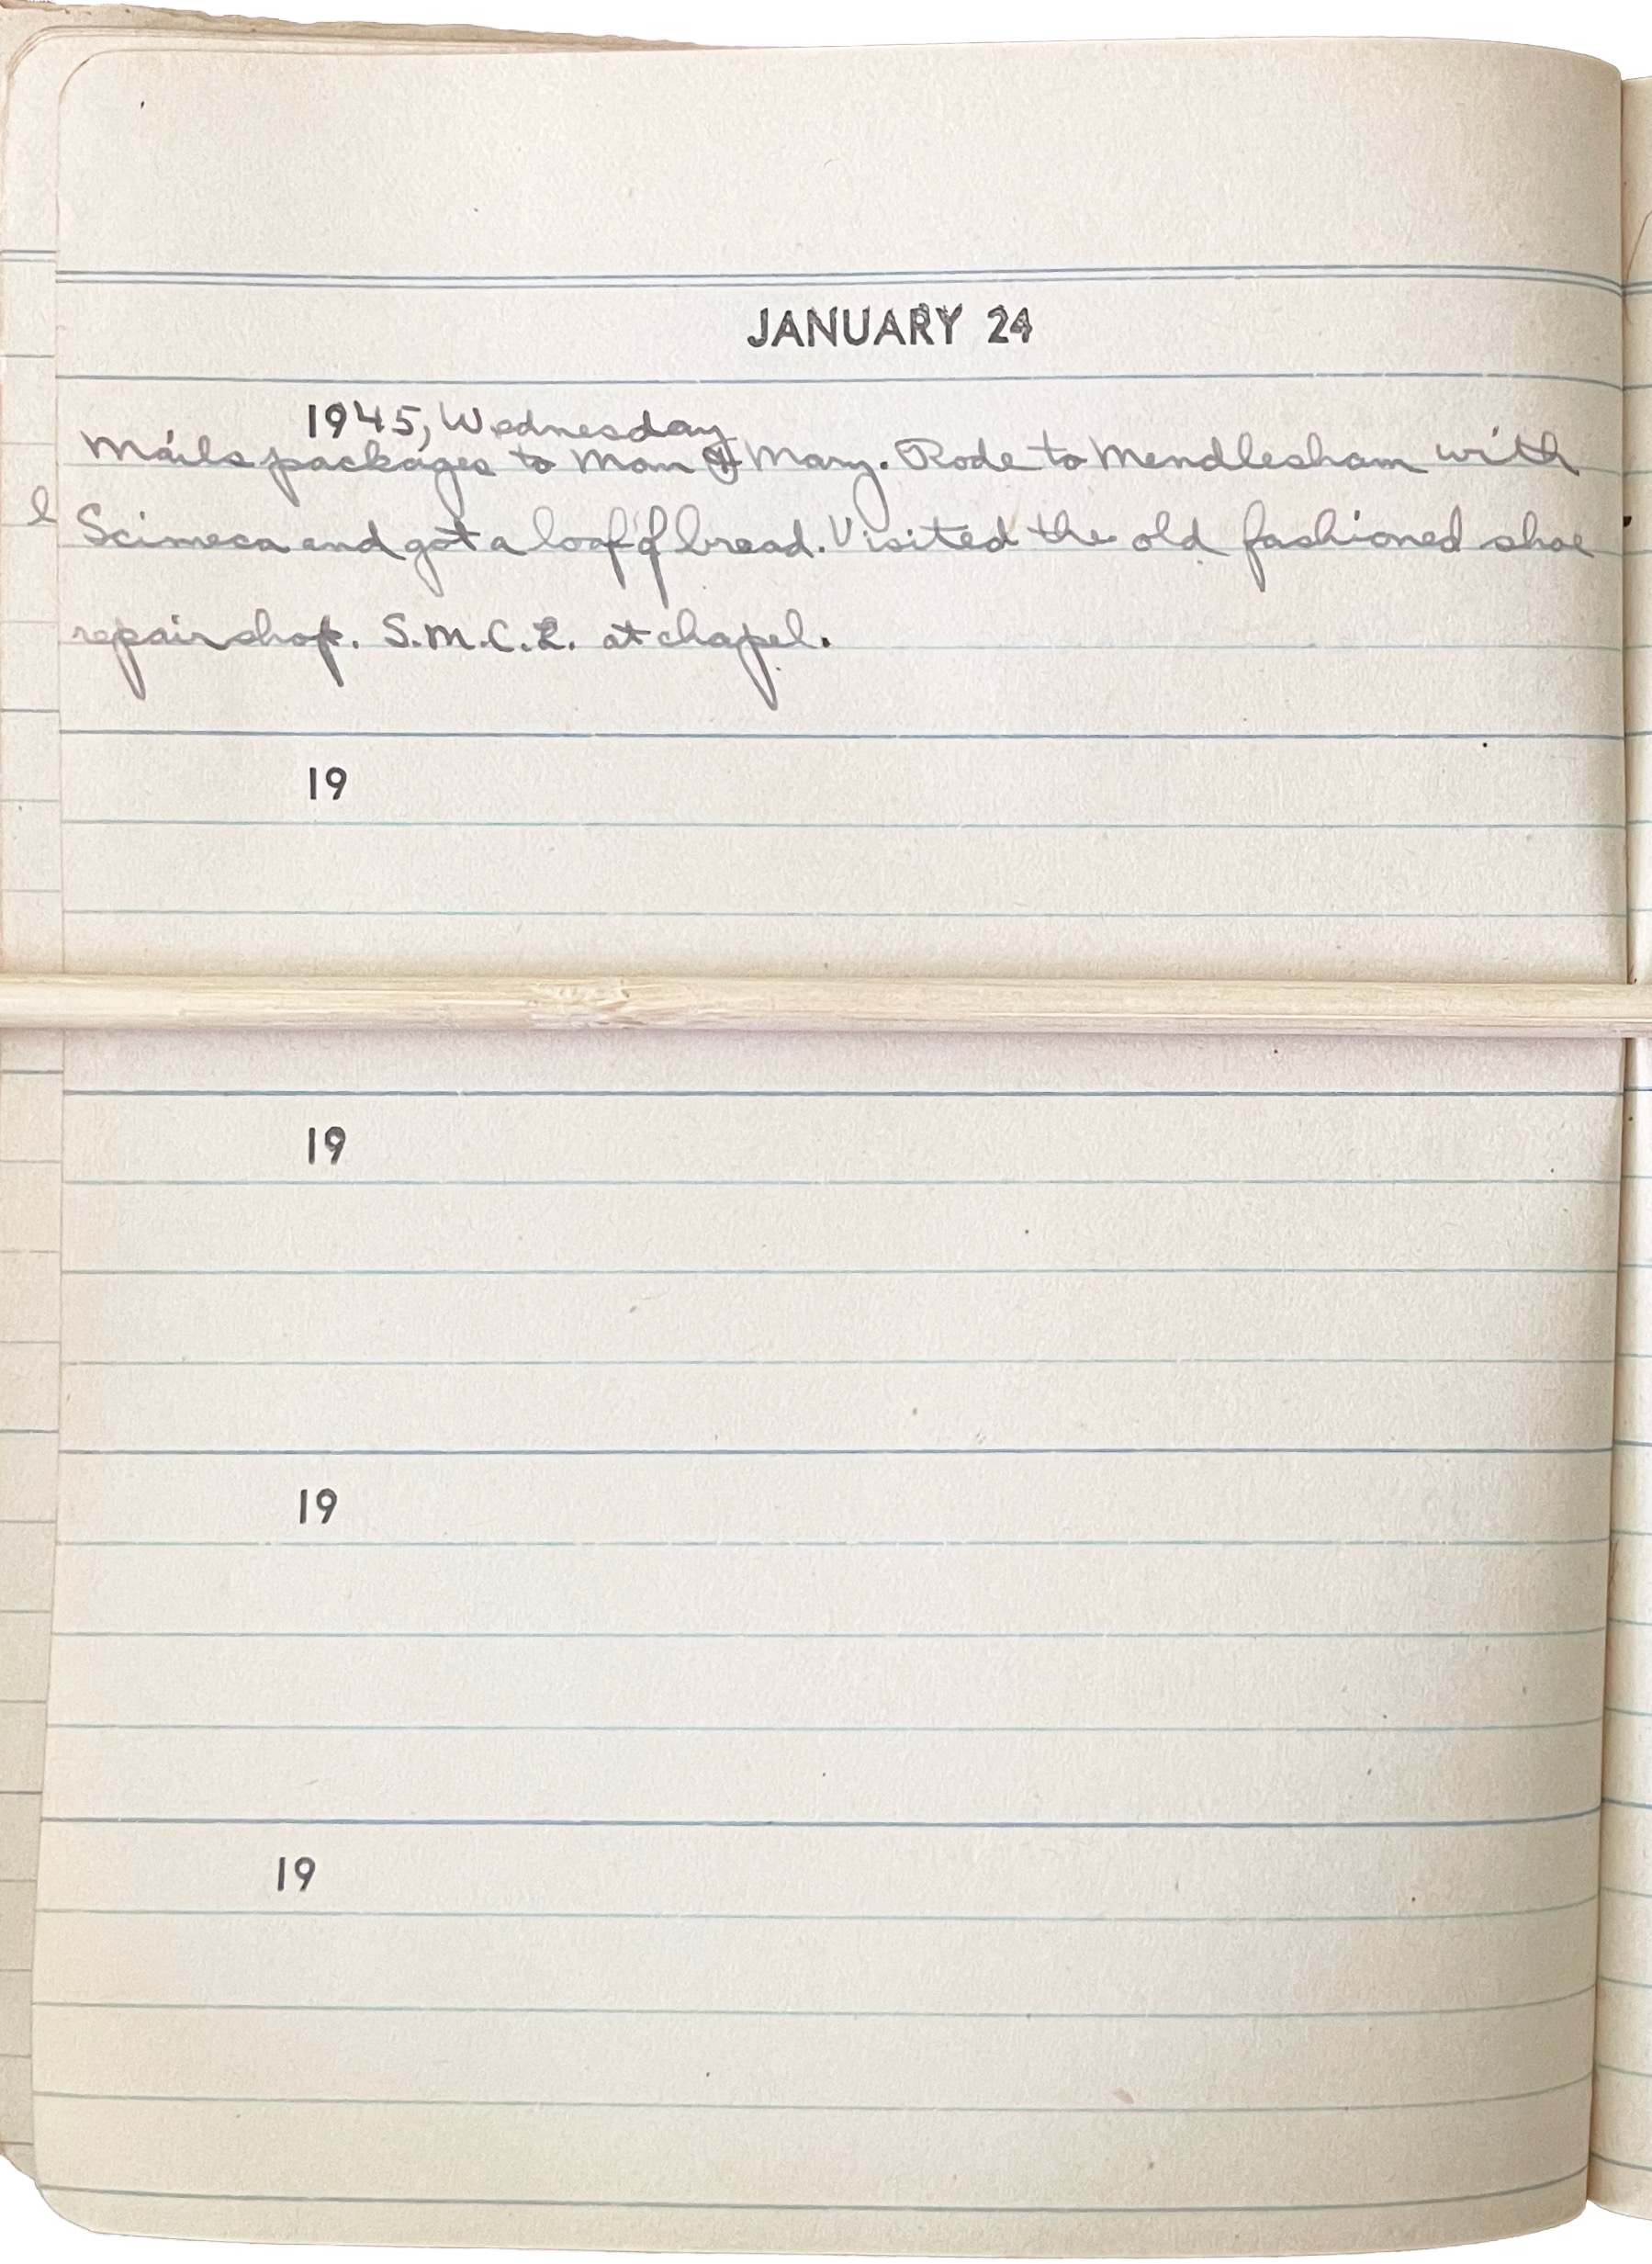 JANUARY 24
1945, Wednesday
Mails packages to Mom & Mary. Rode to Mendlesham with
l
Scimeca and got a loaf of bread. Visited the old fashioned shoe
repair shop. S.M.C.L. at chapel.
19
19
19
19